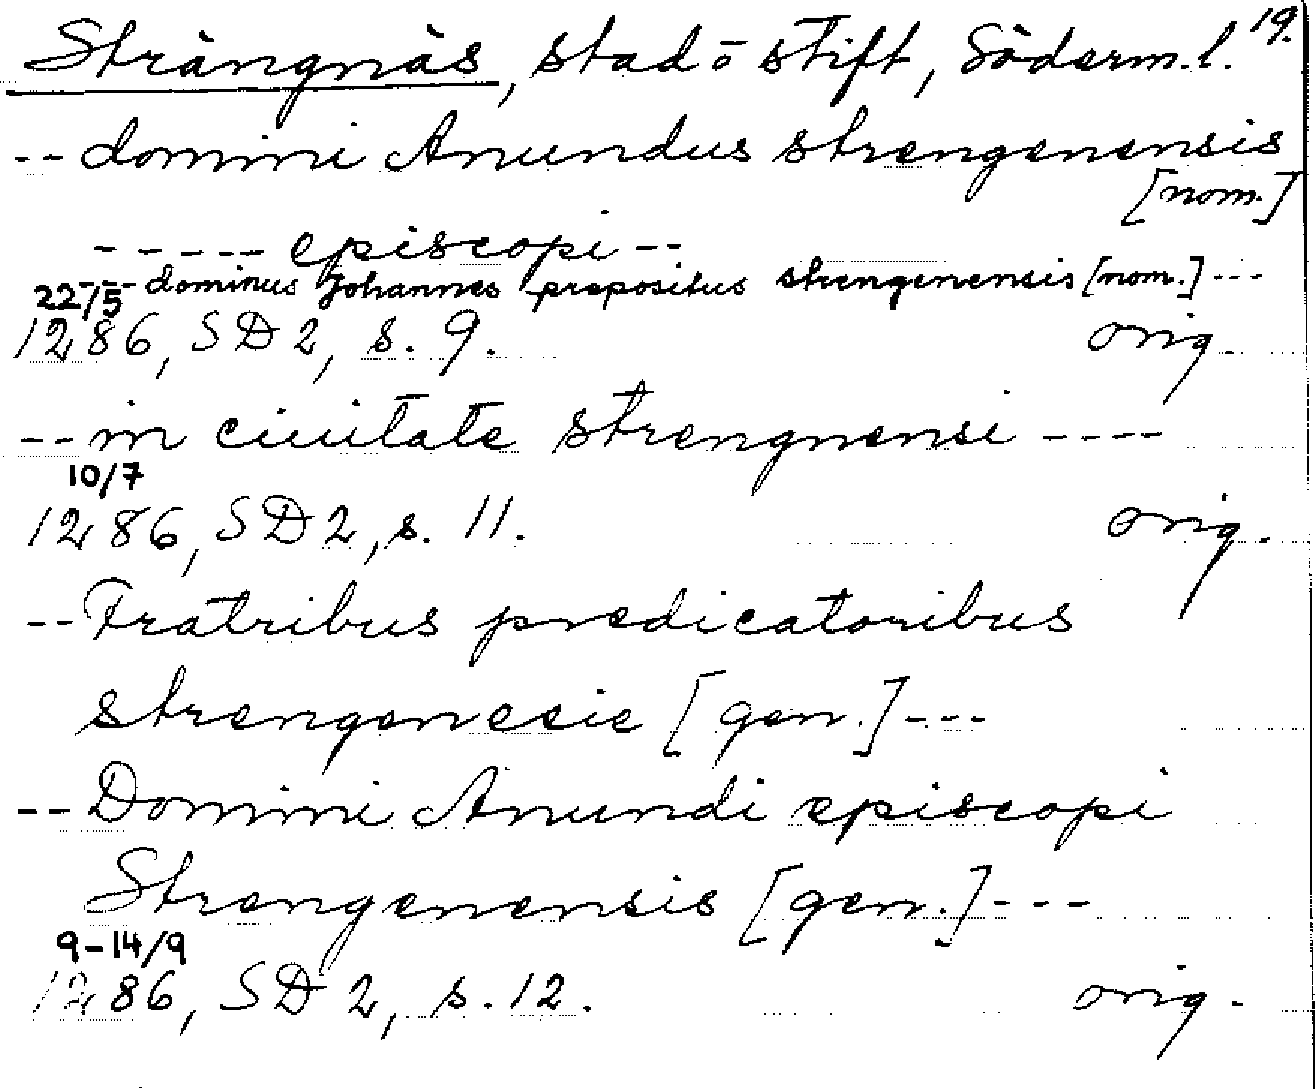 Strängnäs, stad o stift, Söderm.l. 19.
-- domini Anundus strengenensis
[nom.]
----- episcopi --
--- dominus Johannes prepositus strengenensis [nom.] ---
22/5
1286, SD 2, s. 9. orig.
-- in ciuitate strengnensi ----
10/7
1286, SD 2, s. 11. orig.
-- Fratribus predicatoribus
strengenecie [gen.] ---
-- Domini Anundi episcopi
Strengenensis [gen.] ---
9-14/9
1286, SD 2, s. 12. orig.